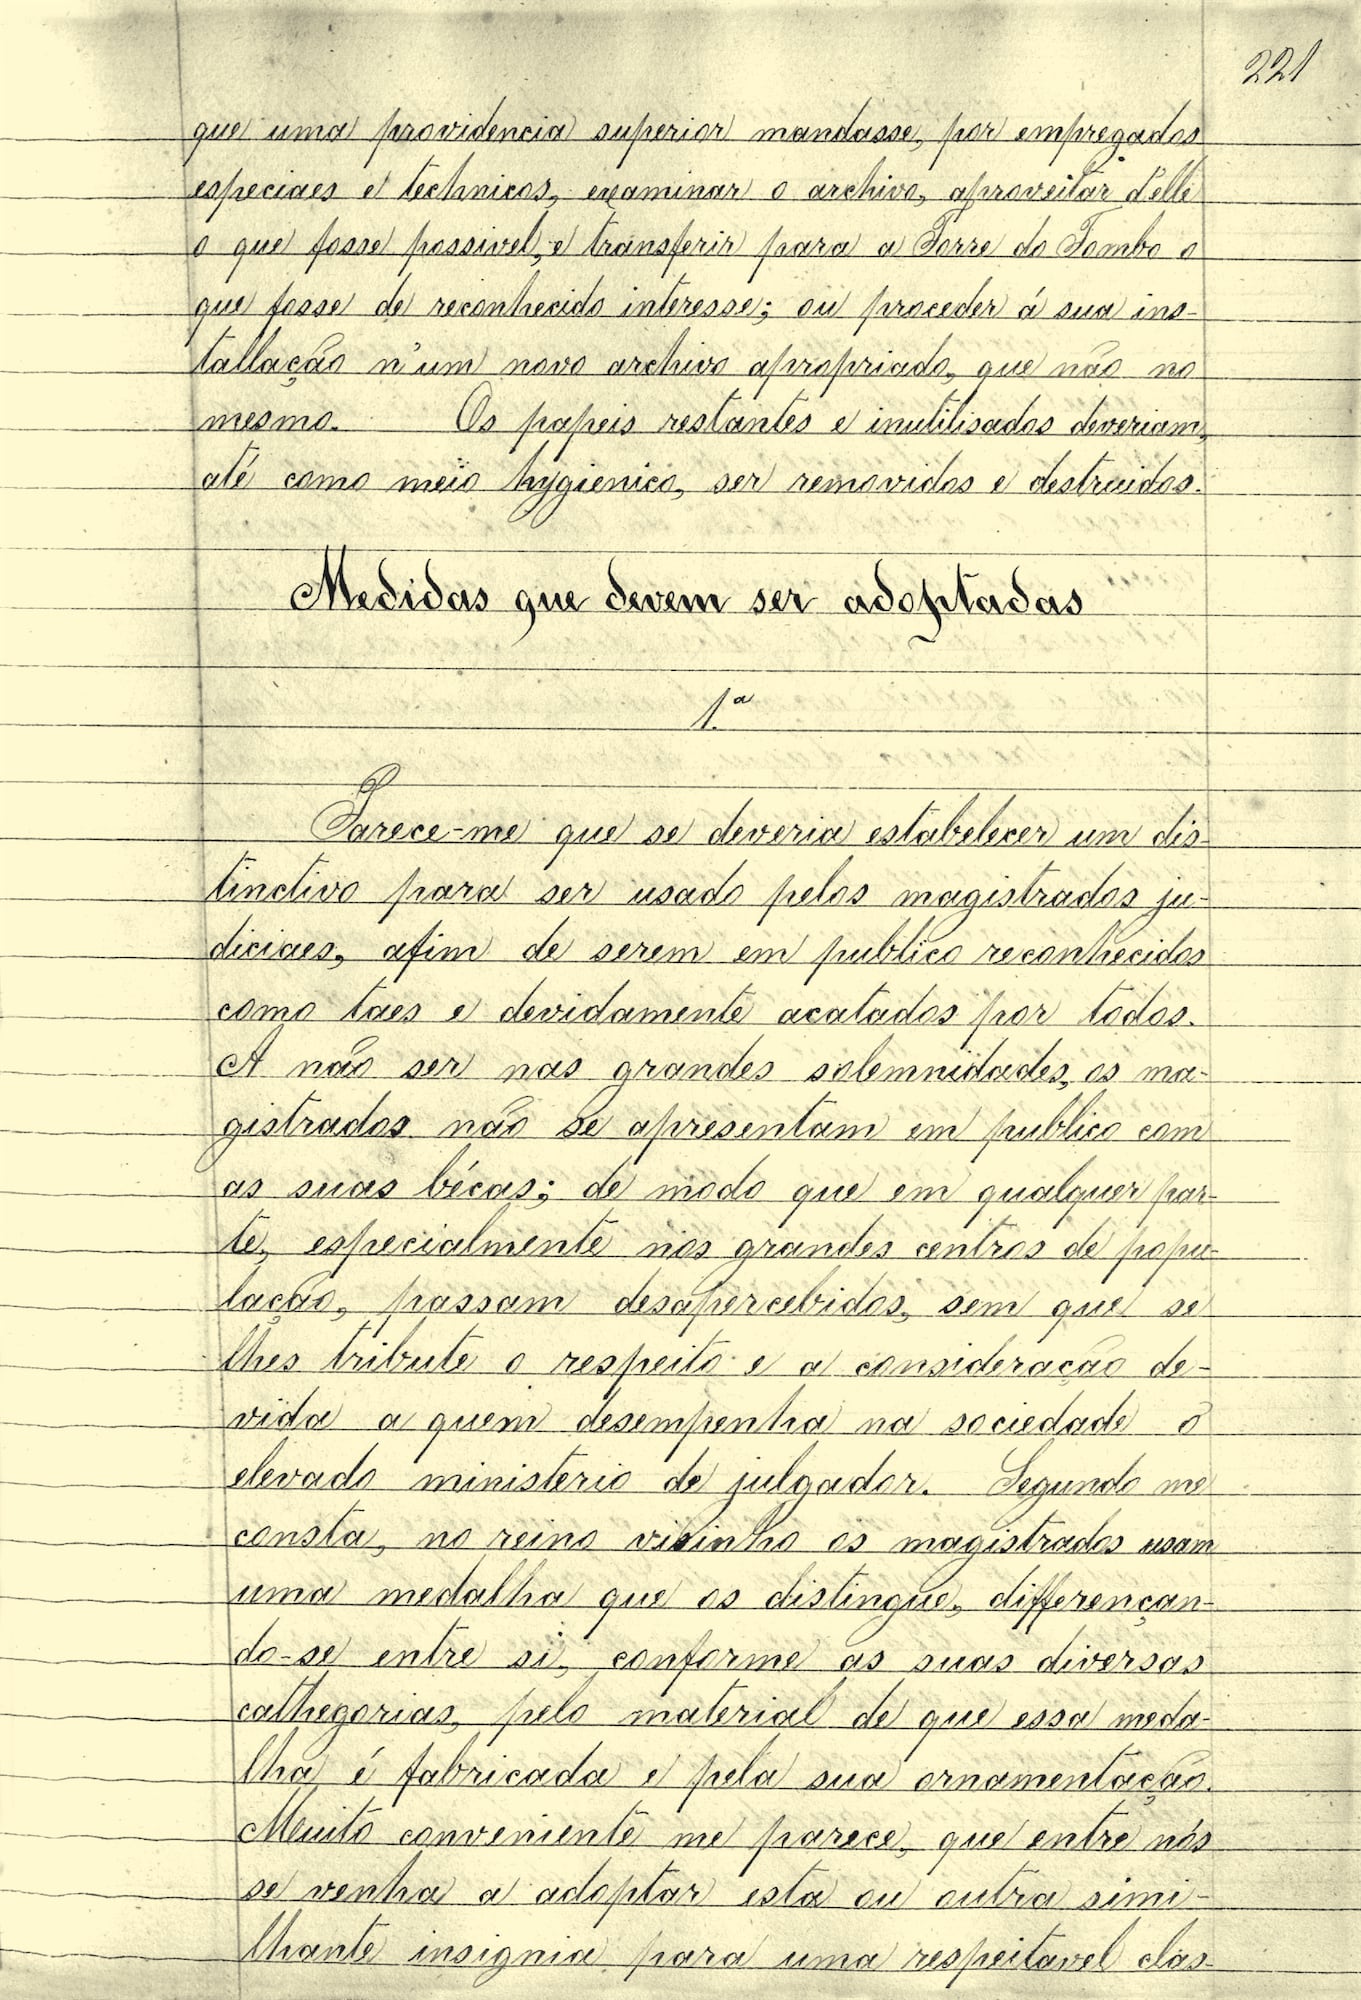 221
que uma providencia superior mandasse, por empregados
especiaes e technicos, examinar o archivo, aproveitar d'elle
o que fosse possivel, e transferir para a Torre do Tombo o
que fosse de reconhecido interesse; ou proceder á sua ins-
tallação n'um novo archivo apropriado, que não no
mesmo. Os papeis restantes e inutilisados deveriam,
até como meio hygienico, ser removidos e destruidos.
Medidas que devem ser adoptadas
1.ª
Parece-me que se deveria estabelecer um dis-
tinctivo para ser usado pelos magistrados ju-
diciaes, afim de serem em publico reconhecidos
como taes e devidamente acatados por todos.
A não ser nas grandes solemnidades, os ma-
gistrados não se apresentam em publico com
as suas bécas; de modo que em qualquer par-
te, especialmente nos grandes centros de popu-
lação, passam desapercebidos, sem que se
lhes tribute o respeito e a consideração de-
vida a quem desempenha na sociedade o
elevado ministerio de julgador. Segundo me
consta, no reino visinho os magistrados usam
uma medalha que os distingue, differençan-
do-se entre si, conforme as suas diversas
cathegorias, pelo material de que essa meda-
lha é fabricada e pela sua ornamentação.
Muito conveniente me parece, que entre nós
se venha a adoptar esta ou outra simi-
lhante insignia para uma respeitavel clas-